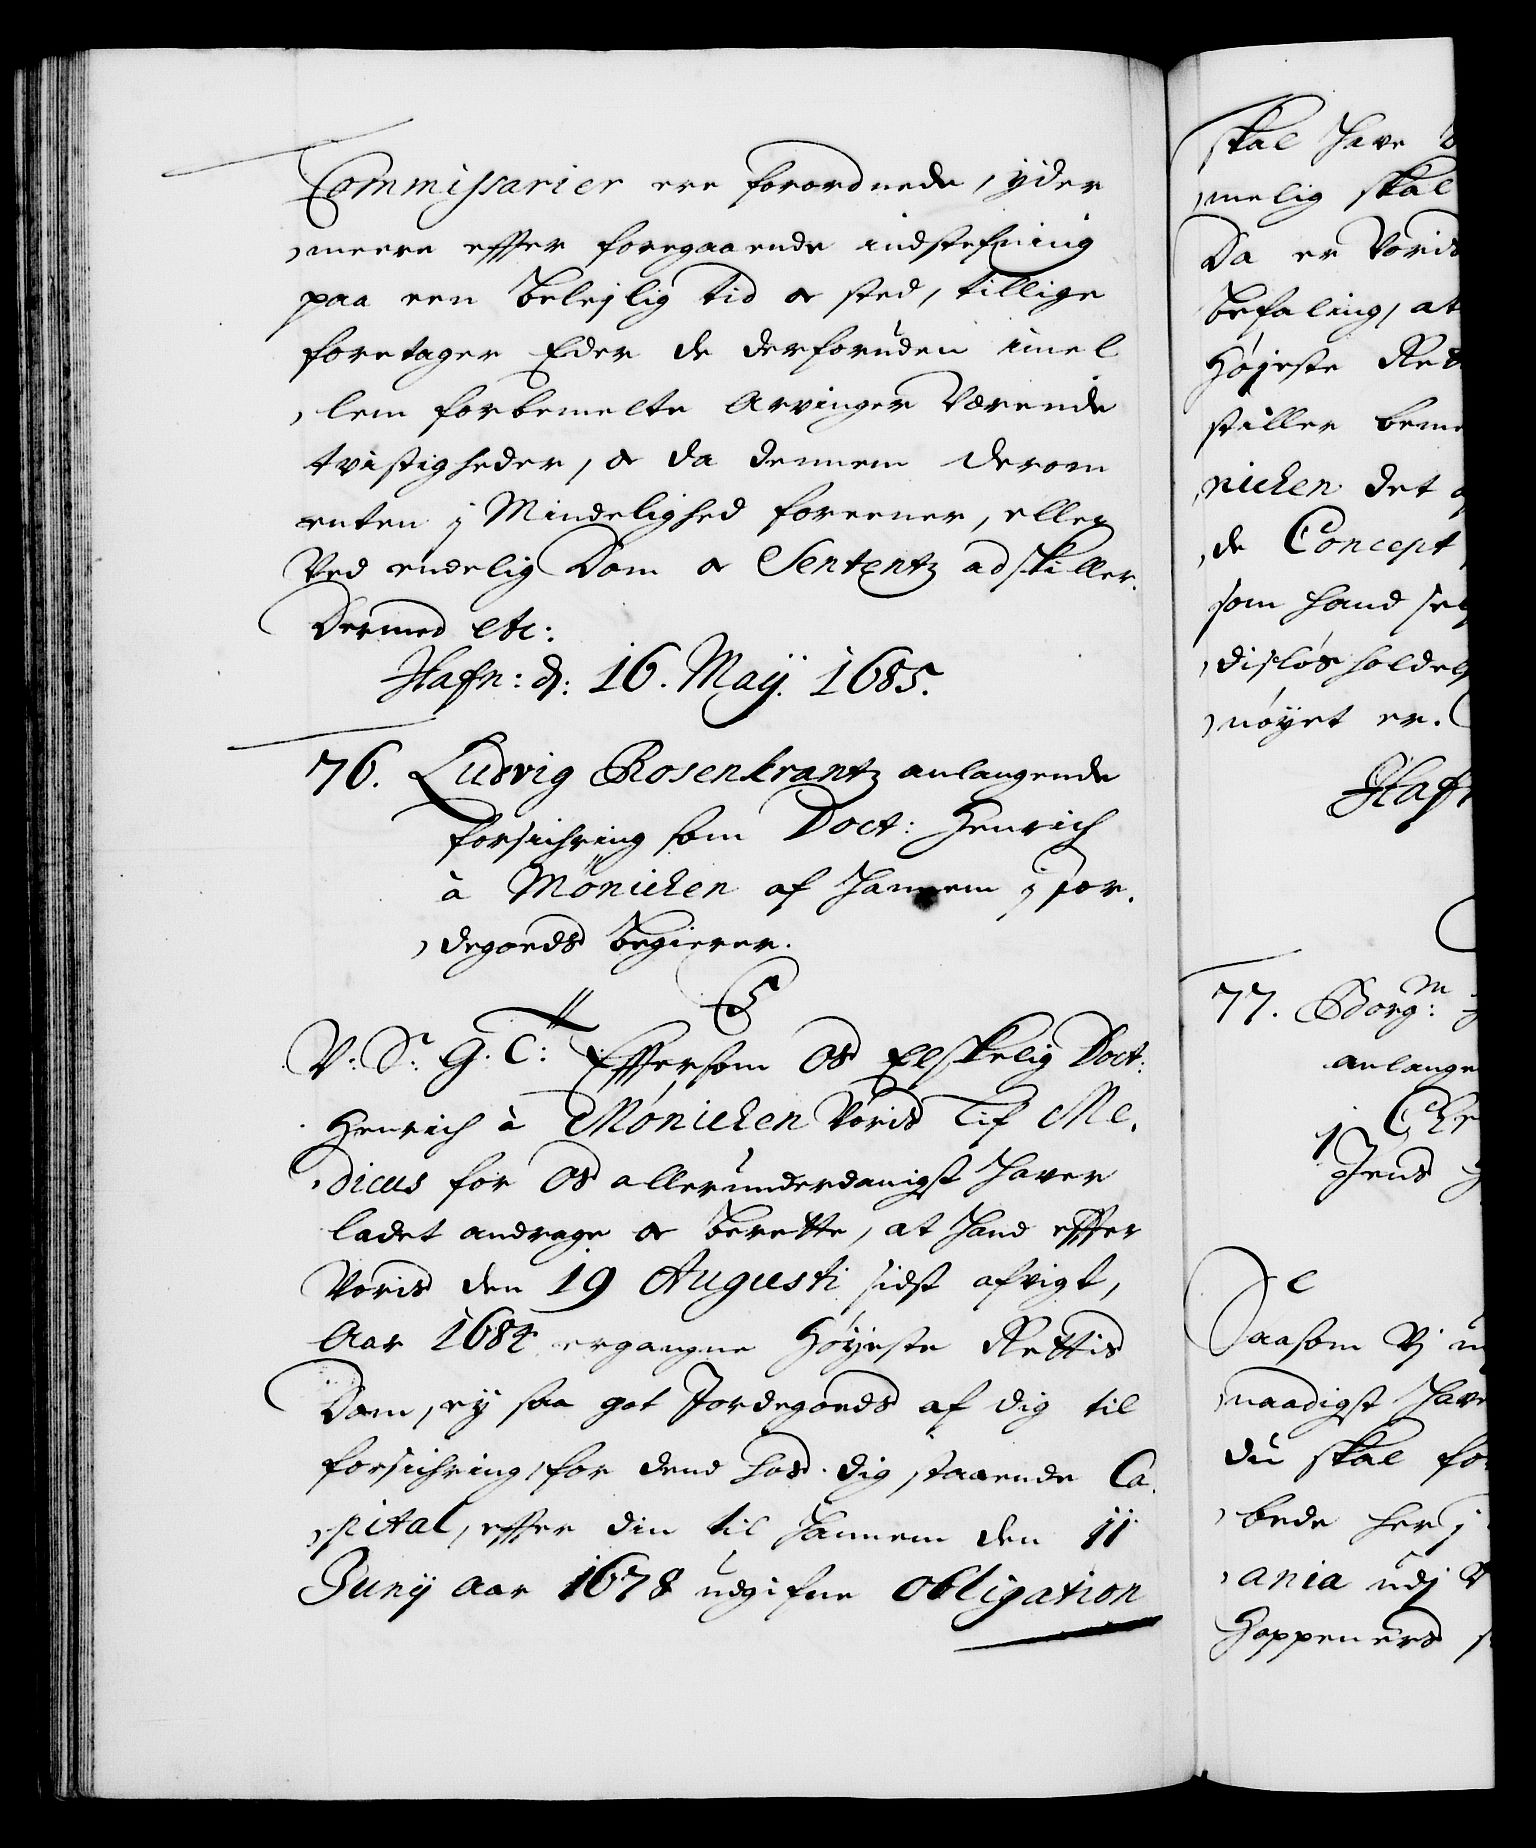 Commissarier ere forordnede, yder
meere effter foregaaende indstefning
paa een beleylig tid & sted, tillige
foretager Eder de derforuden imel
lem forbemelte Arvinger Værende
tvistigheder, & da dennem derom
enten i Mindelighed foreener, eller
Ved endelig Dom & Sententz adskiller.
Dermed etc:
Hafn: d: 16. Maÿ. 1685.
76. Ludvig Rosenkrantz anlangende
forsichring som Doct: Henrich
à Mönichen af hannem i jor.
degoeds begierer.
C5
V: S: G: T: Efftersom Os Elskelig Doct:
Henrich à Mönichen Voris Lif Me.
dicus for Os allerunderdanigst haver
ladet andrage & berette, at hand effter
Voris den 19 Augusti sidst afvigt,
Aar 1684 ergangne Høyeste Rettis
Dom, ey saa got Jordegoeds af dig til
forsichring, for dend hos dig staaende Ca.
pital, effter din til hannem den 11
Junÿ Aar 1678 udgifne obligation
skal have
melig skal
Da er Voris
befaling, at
Høyeste Ret
stiller
nichen det
de Concept
som hand
disløs holdel
nøyet er.
Hafn
77. Borgm:
anlange
Jens
Saasom Vj
naadigst have
du skal for
bede her i
ania udj
Hoppeners